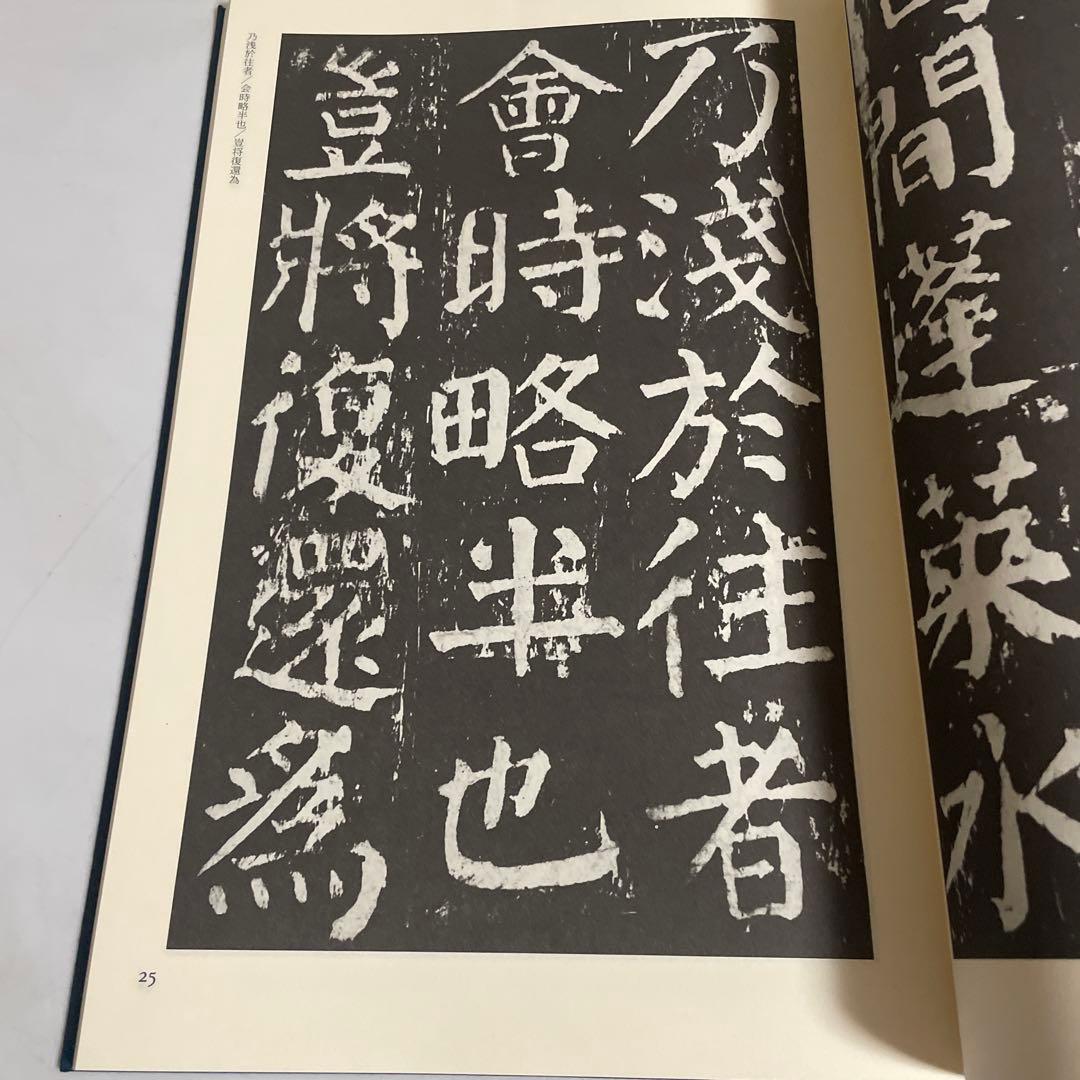 間蓬萊水
乃淺於往者
會時略半也
豈將復還為
乃浅於往者／会時略半也／豈将復還為
25